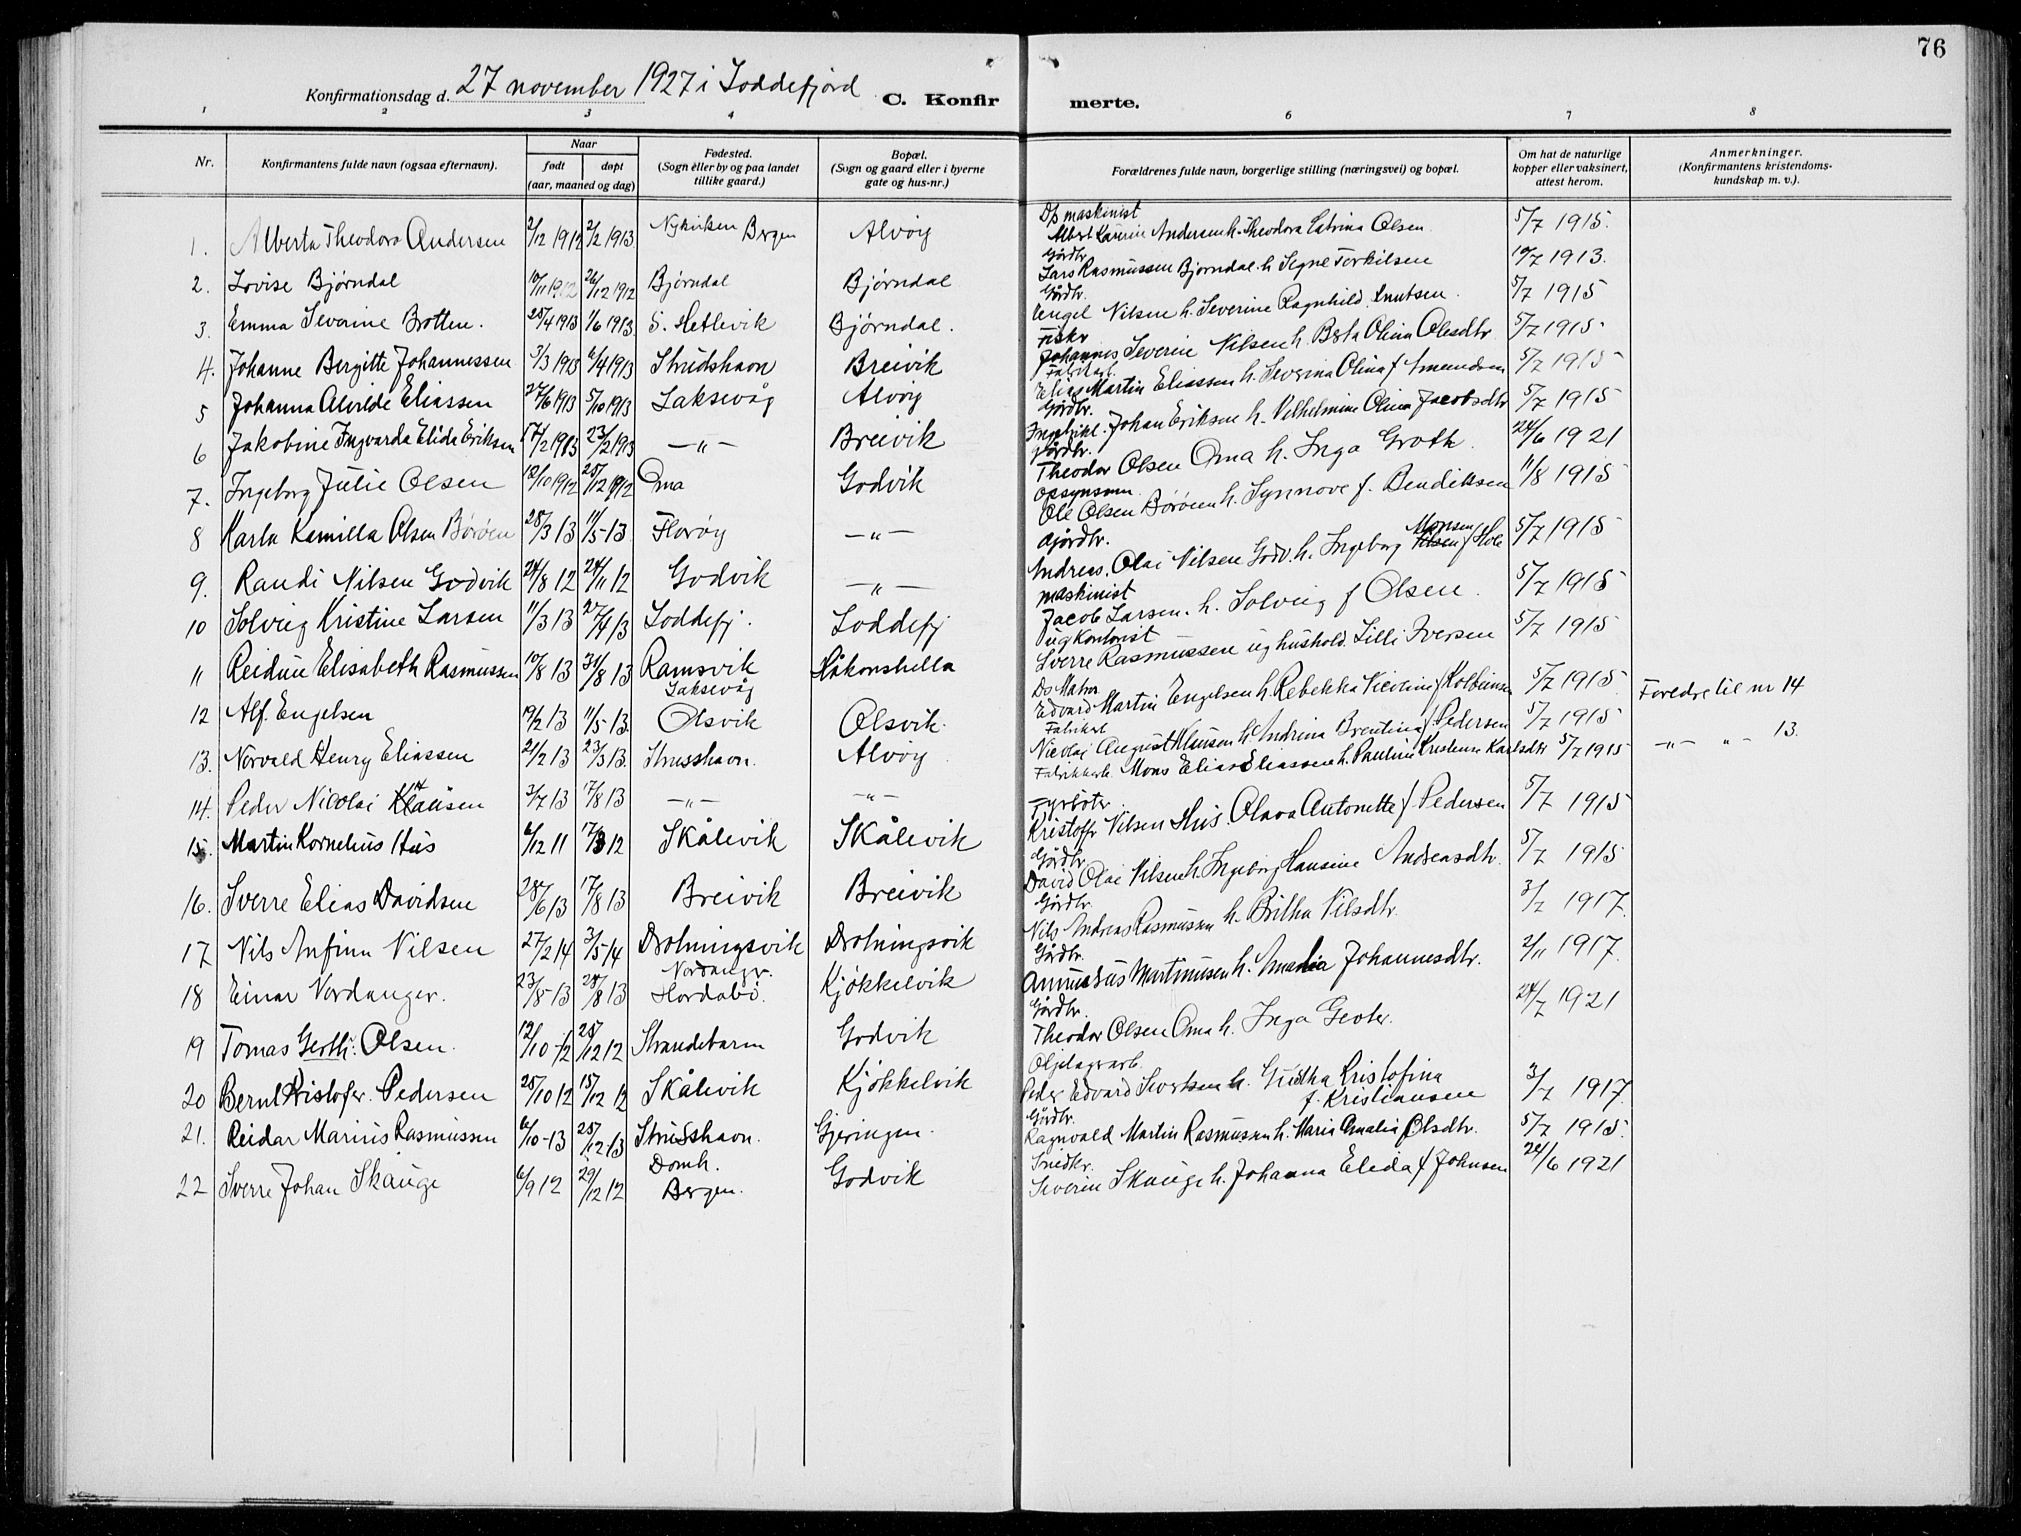 76
Konfirmationsdag d. 27 november 1927 i Loddefjord
C. Konfirmerte.
1 2 3 4 6 7 8
Nr.
Konfirmantens fulde navn (ogsaa efternavn).
Naar
født døpt
(aar, maaned og dag)
Fødested.
(Sogn eller by og paa landet
tillike gaard.)
Bopæl.
(Sogn og gaard eller i byerne
gate og hus-nr.)
Forældrenes fulde navn, borgerlige stilling (næringsvei) og bopæl.
Om hat de naturlige
kopper eller vaksinert,
attest herom.
Anmerkninger.
(Konfirmantens kristendoms-
kundskap m. v.).
Ds maskinist
1. Alberta Theodora Andersen 2/12 1912 2/2 1913 Nykirken Bergen Alvøy Albert Andersen h. Theodora Catrina Olsen 5/7 1915
Gårdbr.
2. Lovise Bjørndal 10/11 1912 26/12 1912 Bjørndal Bjørndal Lars Rasmussen Bjørndal h. Signe Torkilsen 10/7 1913.
Gårdbr.
3. Emma Severine Brotten. 25/4 1913 1/6 1913 S. Hetlevik Bjørndal. Engel Nilsen h. Severine Ragnhild Knutsen. 5/7 1915
Fisker
4. Johanne Bergitte Johannessen 3/3 1913 6/4 1913 Strudshavn Breivik Johannes Severin Nilsen h. Berta Olina Olesdtr 5/7 1915
Fabrikarb.
5 Johanna Alvilde Eliassen 27/6 1913 5/10 1913 Laksevåg Alvøy Elias Martin Eliassen h. Severina Olina f Amundsen 5/7 1915
Gårdbr.
6 Jakobine Ingvarda Elida Eriksen 14/2 1913 23/2 1913 —"— Breivik Ingebrikt Johan Eriksen h. Vilhelmine Olina Jacobsdtr 5/7 1915
Gårdbr.
7. Ingeborg Julie Olsen 12/10 1912 25/12 1912 Oma Godvik Theodor Olsen Oma h. Inga Groth. 24/6 1921
opsynsm.
8 Karla Kamilla Olsen Børøen 28/3 13 11/5-13 Florøy —"— Ole Olsen Børøen h. Synnøve f. Bendiksen 11/8 1915
Gjårdbr.
9. Randi Nilsen Godvik 24/8 12 24/11 12 Godvik —"— Andreas Olai Nilsen Godv. h. Ingeborg Monsen f Hole 5/7 1915
maskinist
10 Solveig Kristine Larsen 11/3 13 27/4 13 Loddefj. Loddefj Jacob Larsen. h. Solveig f Olsen. 5/7 1915
ug kontorist
11 Reidun Elisabeth Rasmussen 10/8 13 31/8 13 Ramsvik Laksevåg Håkonshella Sverre Rasmussen ug hushold. Lilli Iversen 5/7 1915
Ds Matr.
12 Alf Engelsen 19/2 13 11/5 13 Olsvik Olsvik. Edvard Martin Engelsen h. Rebekka Nicoline f Kolbeinsen 5/7 1915 Foreldre til nr 14
Fabrikarb
13. Norvald Henry Eliassen 21/2 13 23/3 13. Strusshavn. Alvøy Nicolai August Hansen h Andrina Brentina f. Pedersen 5/7 1915 —"— " — 13.
14. Peder Nicolai Hansen 3/7 13 17/8 13 —"— —"— Fabrikkarb. Mons Elias Eliassen h. Pauline Kristense Karlsdtr 5/7 1915
Fyrbøter.
15. Martin Kornelius Hus 6/12 11 17/3 12 Skålevik Skålevik Kristoffr Nilsen Hus. Olava Antonette f. Pedersen 5/7 1915
Gårdbr.
16. Sverre Elias Davidsen 28/6 13 17/8 13 Breivik Breivik David Olai Nilsen h. Ingeborg Hansine Andreasdtr. 5/7 1915
Gårdbr.
17 Nils Anfinn Nilsen 27/2 14 3/5 14 Drotningsvik Drotningsvik Nils Andreas Rasmussen h. Britha Nilsdtr. 3/7 1917.
Gårdbr.
18 Einar Nordanger. 23/5-13 28/8 13 Nordangr. Hordabø. Kjøkkelvik Martinusen h. Amalia Johannesdtr. 2/11 1917.
Gårdbr.
19 Tomas Groth: Olsen. 12/10-12 25/12 12 Strandebarm Godvik Theodor Olsen Oma h. Inga Groter. 24/7 1921
Oljelagrarb.
20 Bernt Kristofer. Pedersen 25/10 12 15/12 12 Skålevik Kjøkkelvik Peder Edvard Sivertsen h. Gurtha Kristofina f. Kristiansen 3/7 1917.
Gårdbr.
21. Reidar Marius Rasmussen 6/10-13 25/12 13 Strusshavn. Gjeringen. Ragnvald Martin Rasmussen h. Maria Amalia Olsdtr. 5/7 1915.
Snedkr.
22 Sverre Johan Skauge 6/9 12 29/12 12 Domk. Bergen. Godvik Severin Skauge h. Johanna Elida f Johnsen 24/6 1921